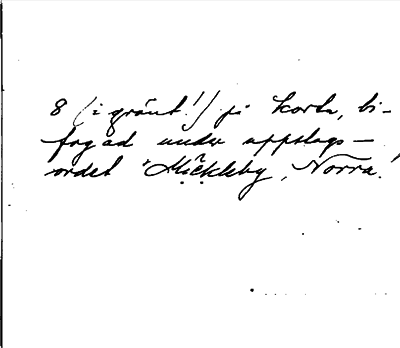 8 (i grönt!) på karta, bi-
fogad under uppslags-
ordet "Mickleby, Norra."